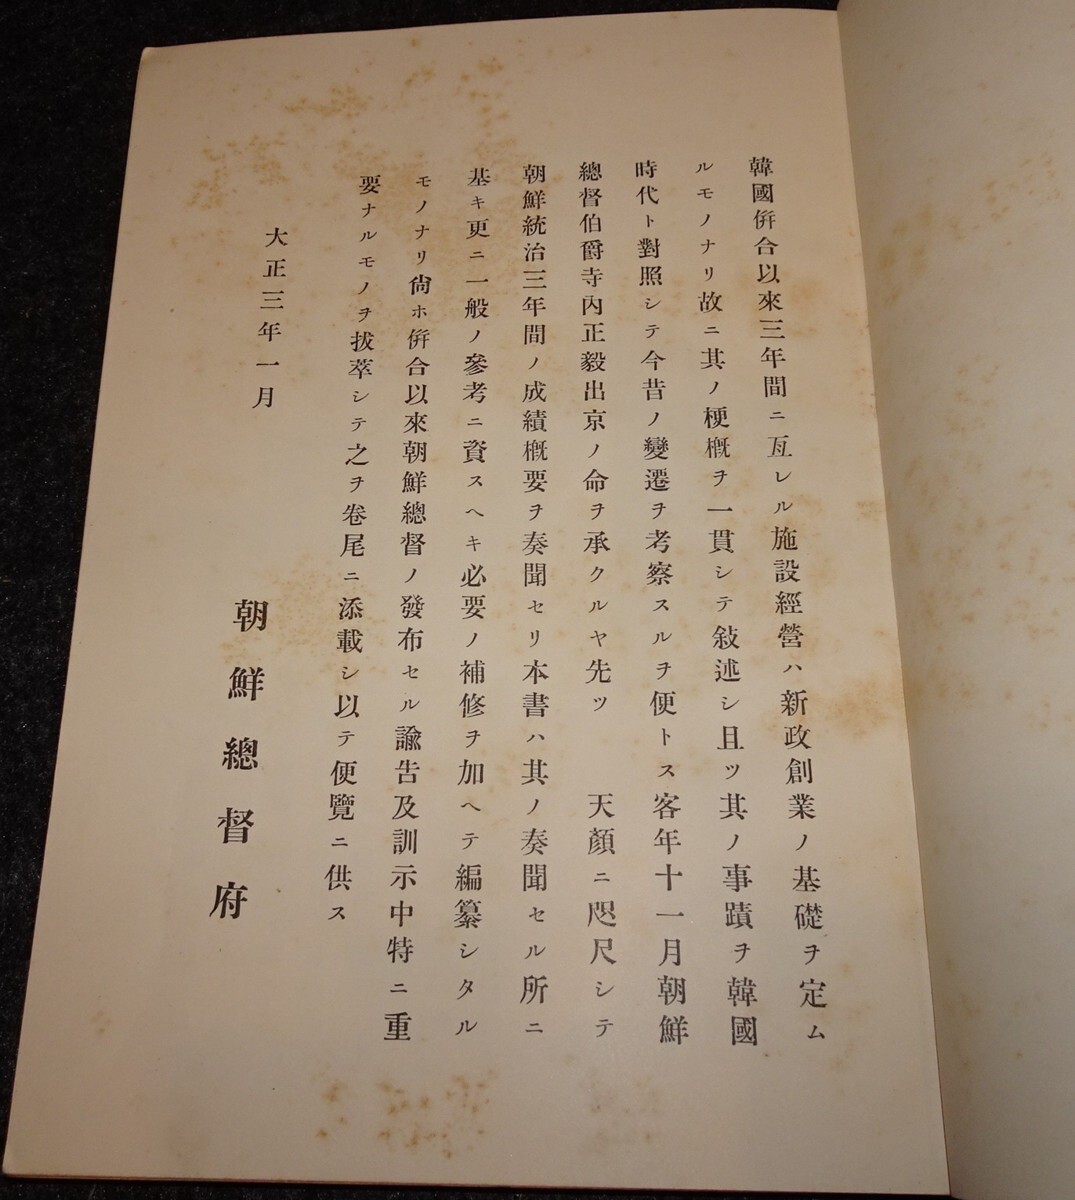 韓國倂合以來三年間ニ亙レル施設經營ハ新政創業ノ基礎ヲ定ム
ルモノナリ故ニ其ノ梗槪ヲ一貫シテ敍述シ且ツ其ノ事蹟ヲ韓國
時代ト對照シテ今昔ノ變遷ヲ考察スルヲ便トス客年十一月朝鮮
總督伯爵寺內正毅出京ノ命ヲ承クルヤ先ツ　天顏ニ咫尺シテ
朝鮮統治三年間ノ成績槪要ヲ奏聞セリ本書ハ其ノ奏聞セル所ニ
基キ更ニ一般ノ參考ニ資スヘキ必要ノ補修ヲ加ヘテ編纂シタル
モノナリ尙ホ倂合以來朝鮮總督ノ發布セル諭告及訓示中特ニ重
要ナルモノヲ拔萃シテ之ヲ卷尾ニ添載シ以テ便覽ニ供ス
大正三年一月
朝鮮總督府